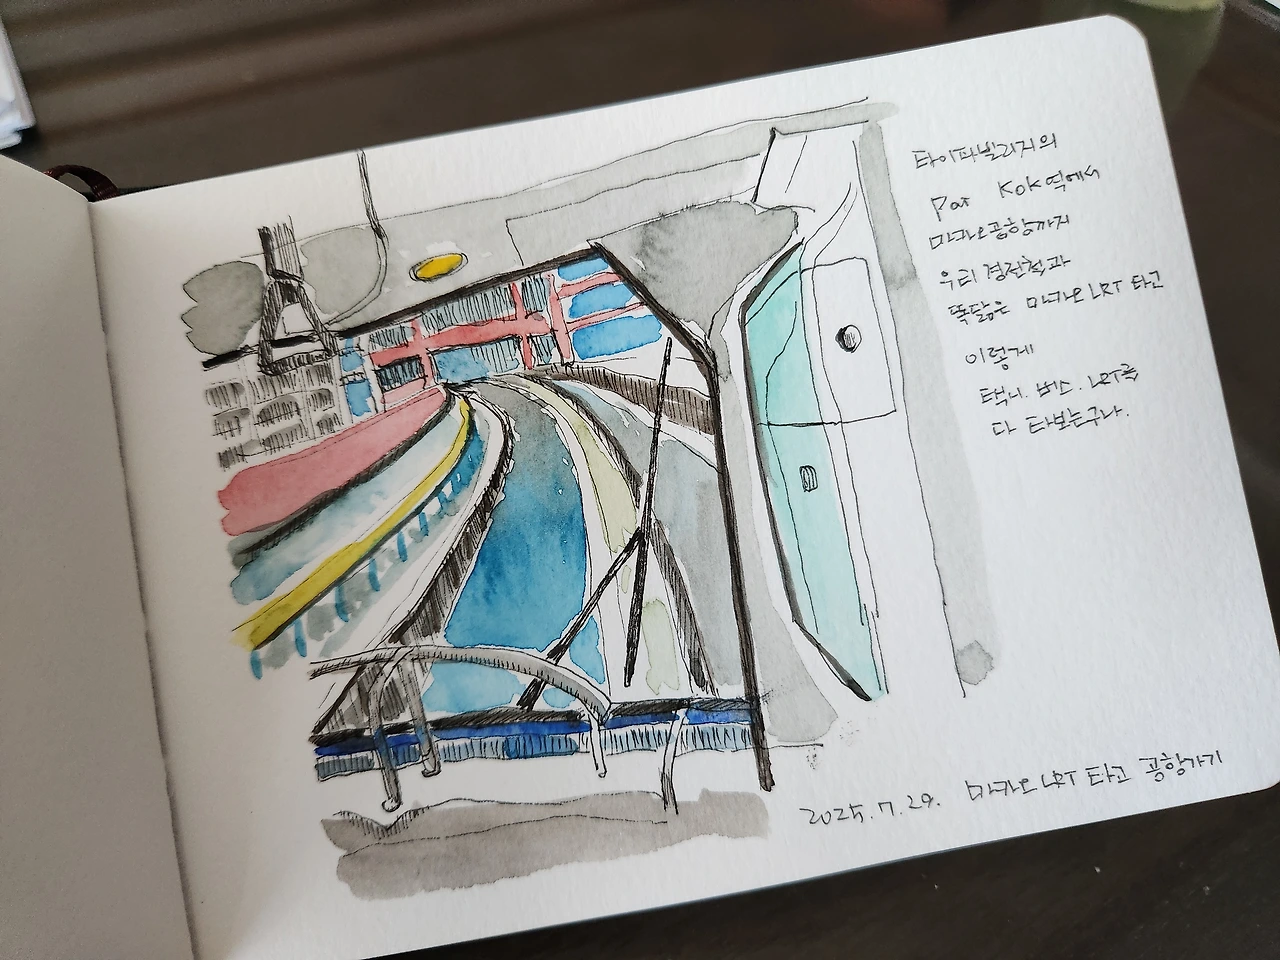 타이파빌리지의
Pai Kok역에서
마카오공항까지
우리 경전철과
똑닮은 마카오 LRT 타고
이렇게
택시. 버스. LRT를
다 타보는구나.
2025.7.29. 마카오 LRT 타고 공항가기